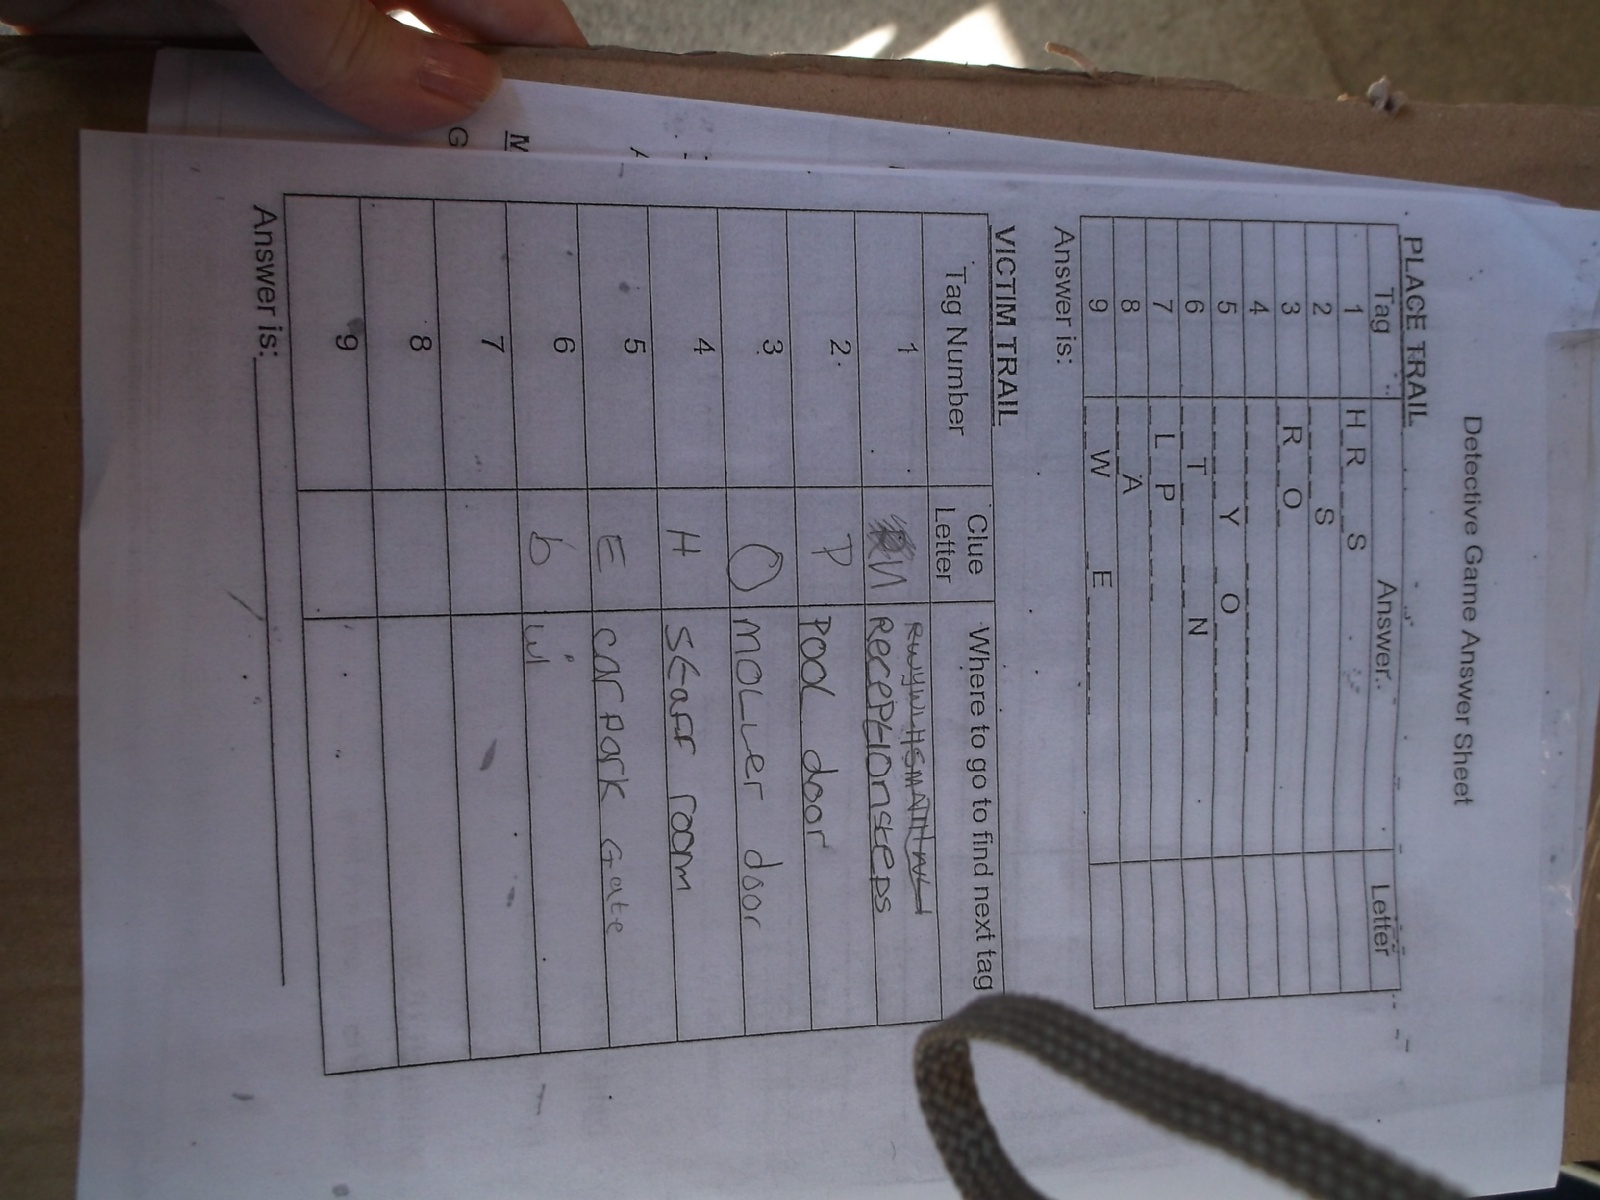 Detective Game Answer Sheet
PLACE TRAIL
Tag Answer Letter
1 H R _ _ S _
2 _ _ _ S
3 R _ _ O _
4 _ _ _ _ _ _ _ _ _ _ _ _
5 _ _ _ Y _ _ O _ _ _ _
6 _ _ T _ _ _ _ N
7 _ L P _ _ _ _
8 _ _ A
9 _ _ W _ _ _ E _ _ _ _
Answer is:
VICTIM TRAIL
Tag Number Clue Letter Where to go to find next tag
1 N Receptionsteps
2 P Pool door
3 O moller door
4 H Staff room
5 E car park Gate
6 b wi
7
8
9
Answer is:
M
G